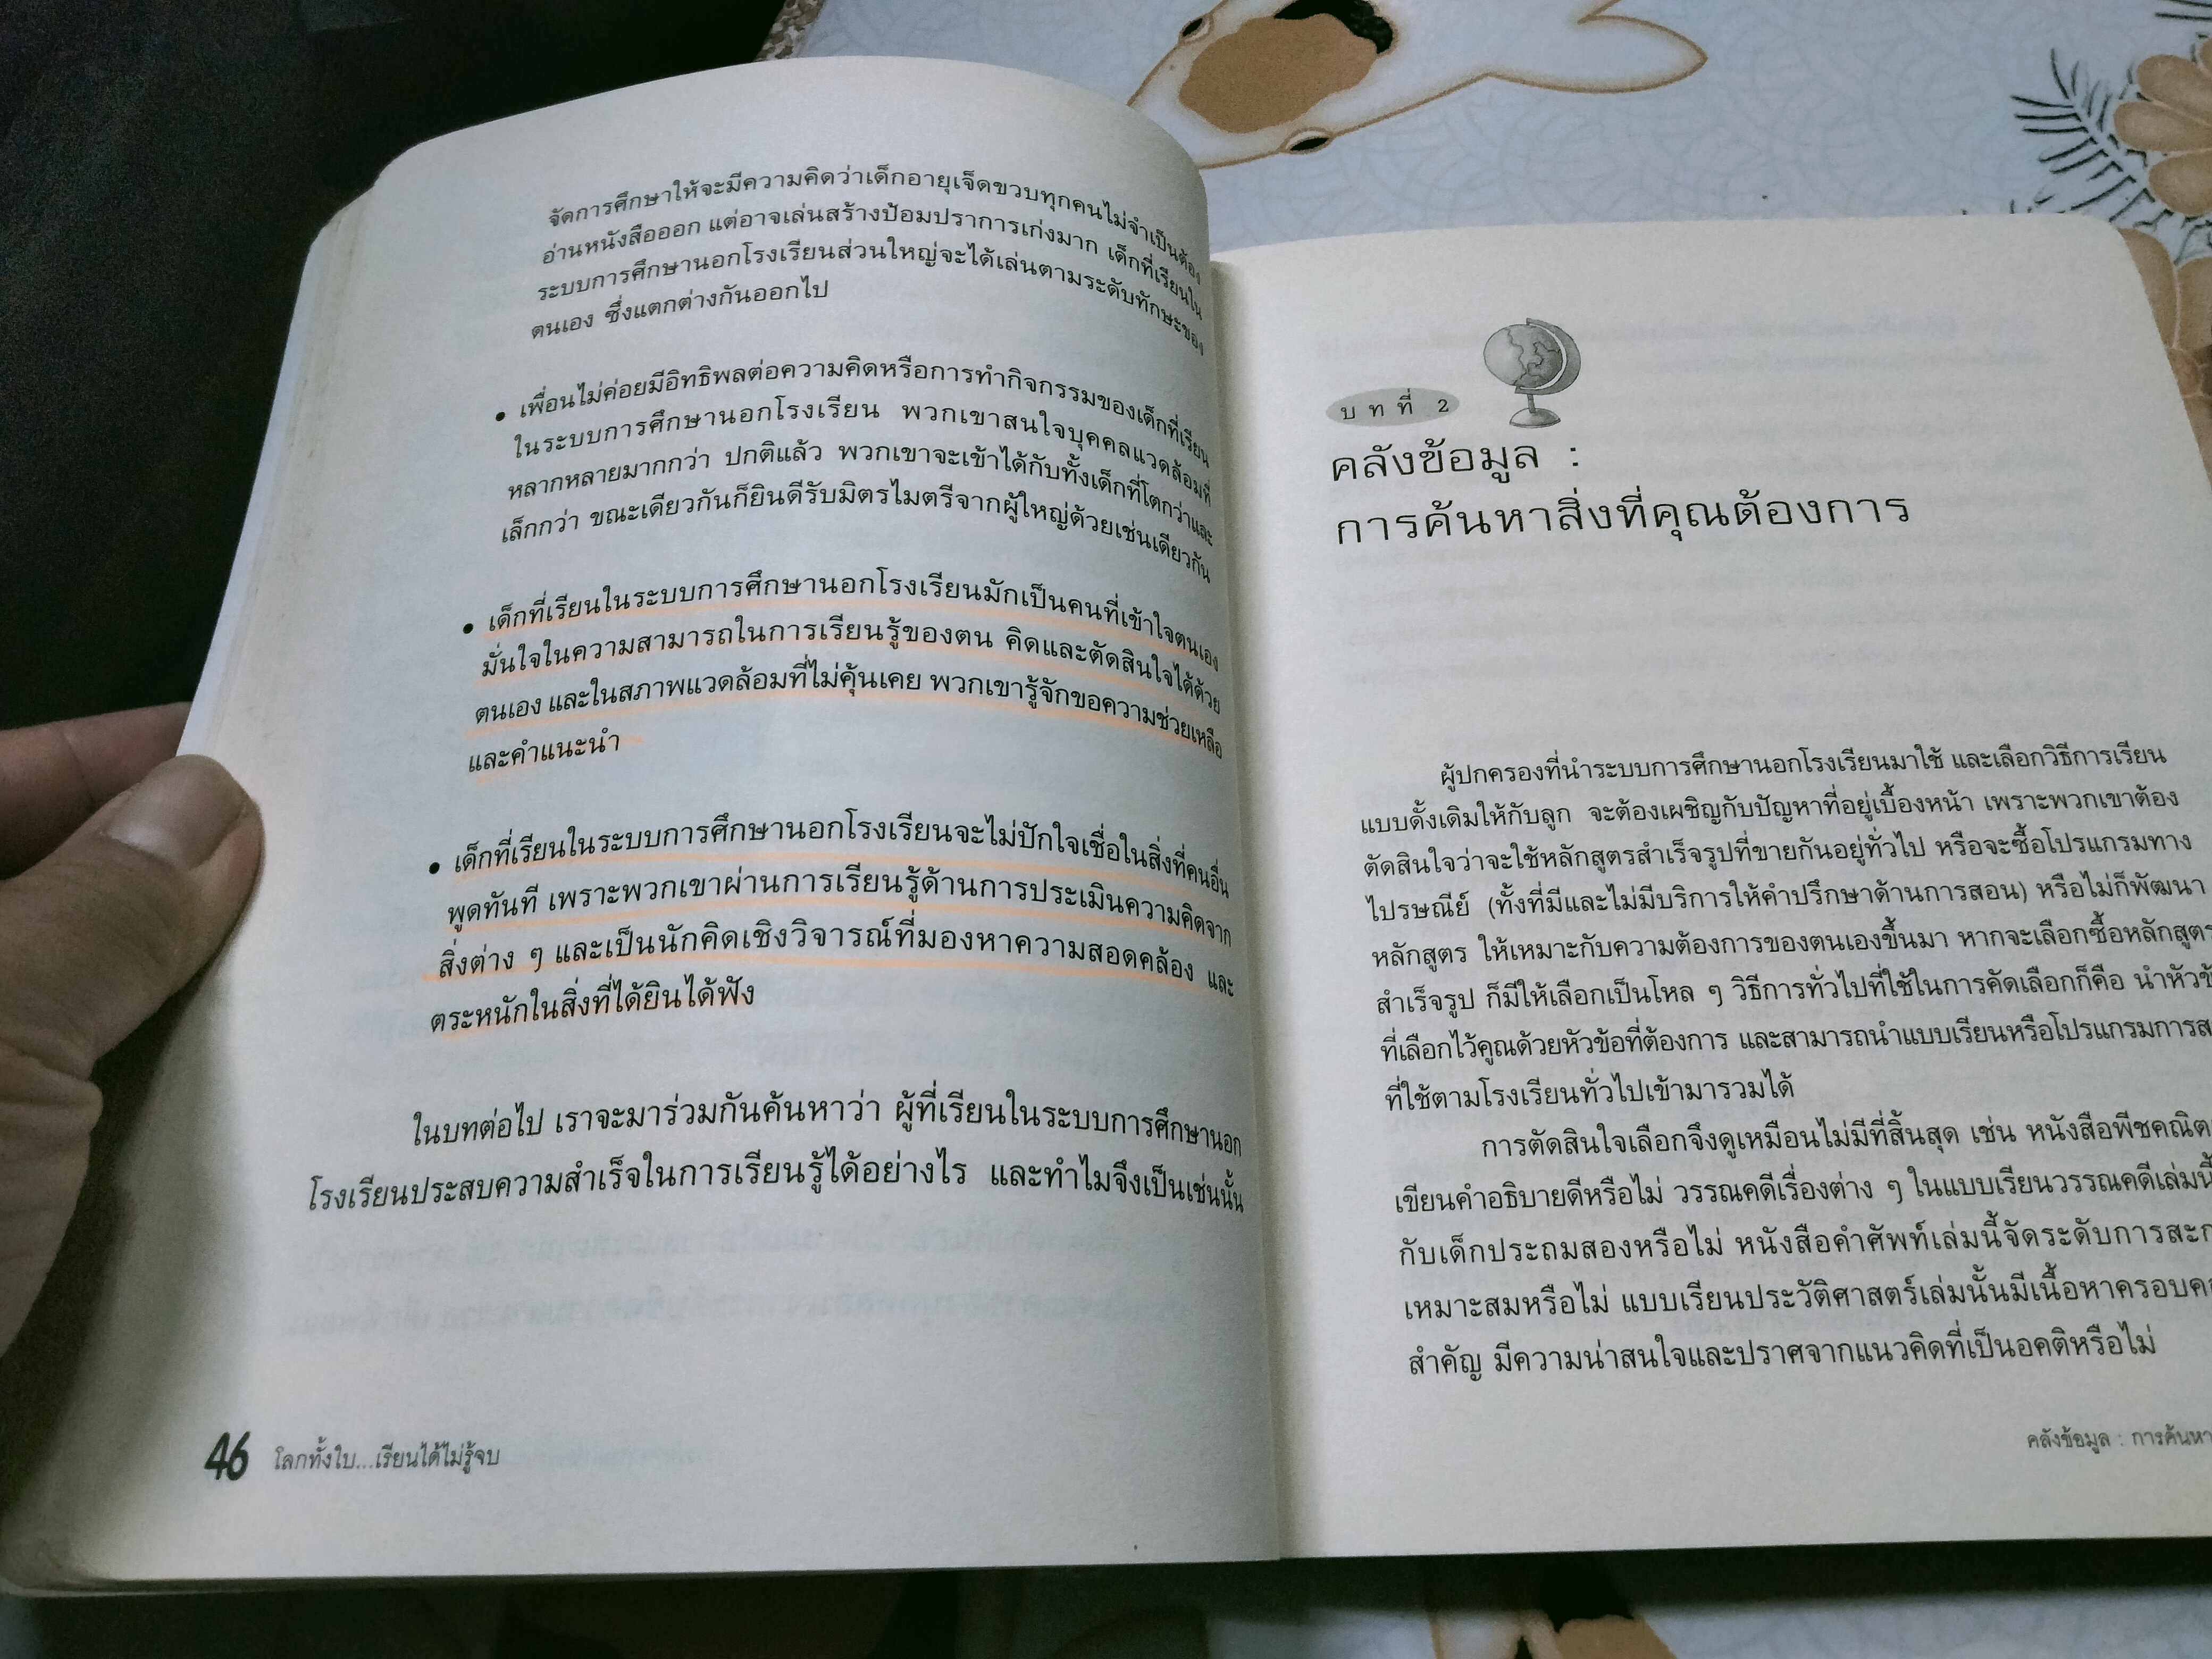 จัดการศึกษาให้จะมีความคิดว่าเด็กอายุเจ็ดขวบทุกคนไม่จำเป็นต้อง
อ่านหนังสือออก แต่อาจเล่นสร้างป้อมปราการเก่งมาก เด็กที่เรียนใน
ระบบการศึกษานอกโรงเรียนส่วนใหญ่จะได้เล่นตามระดับทักษะของ
ตนเอง ซึ่งแตกต่างกันออกไป
• เพื่อนไม่ค่อยมีอิทธิพลต่อความคิดหรือการทำกิจกรรมของเด็กที่เรียน
ในระบบการศึกษานอกโรงเรียน พวกเขาสนใจบุคคลแวดล้อมที่
หลากหลายมากกว่า ปกติแล้ว พวกเขาจะเข้าได้กับทั้งเด็กที่โตกว่าและ
เล็กกว่า ขณะเดียวกันก็ยินดีรับมิตรไมตรีจากผู้ใหญ่ด้วยเช่นเดียวกัน
• เด็กที่เรียนในระบบการศึกษานอกโรงเรียนมักเป็นคนที่เข้าใจตนเอง
มั่นใจในความสามารถในการเรียนรู้ของตน คิดและตัดสินใจได้ด้วย
ตนเอง และในสภาพแวดล้อมที่ไม่คุ้นเคย พวกเขารู้จักขอความช่วยเหลือ
และคำแนะนำ
• เด็กที่เรียนในระบบการศึกษานอกโรงเรียนจะไม่ปักใจเชื่อในสิ่งที่คนอื่น
พูดทันที เพราะพวกเขาผ่านการเรียนรู้ด้านการประเมินความคิดจาก
สิ่งต่าง ๆ และเป็นนักคิดเชิงวิจารณ์ที่มองหาความสอดคล้อง และ
ตระหนักในสิ่งที่ได้ยินได้ฟัง
ในบทต่อไป เราจะมาร่วมกันค้นหาว่า ผู้ที่เรียนในระบบการศึกษานอก
โรงเรียนประสบความสำเร็จในการเรียนรู้ได้อย่างไร และทำไมจึงเป็นเช่นนั้น
46 โลกทั้งใบ...เรียนได้ไม่รู้จบ
บทที่ 2
คลังข้อมูล :
การค้นหาสิ่งที่คุณต้องการ
ผู้ปกครองที่นำระบบการศึกษานอกโรงเรียนมาใช้ และเลือกวิธีการเรียน
แบบดั้งเดิมให้กับลูก จะต้องเผชิญกับปัญหาที่อยู่เบื้องหน้า เพราะพวกเขาต้อง
ตัดสินใจว่าจะใช้หลักสูตรสำเร็จรูปที่ขายกันอยู่ทั่วไป หรือจะซื้อโปรแกรมทาง
ไปรษณีย์ (ทั้งที่มีและไม่มีบริการให้คำปรึกษาด้านการสอน) หรือไม่ก็พัฒนา
หลักสูตร ให้เหมาะกับความต้องการของตนเองขึ้นมา หากจะเลือกซื้อหลักสูตร
สำเร็จรูป ก็มีให้เลือกเป็นโหล ๆ วิธีการทั่วไปที่ใช้ในการคัดเลือกก็คือ นำหัวข้
ที่เลือกไว้คูณด้วยหัวข้อที่ต้องการ และสามารถนำแบบเรียนหรือโปรแกรมการส
ที่ใช้ตามโรงเรียนทั่วไปเข้ามารวมได้
การตัดสินใจเลือกจึงดูเหมือนไม่มีที่สิ้นสุด เช่น หนังสือพีชคณิต
เขียนคำอธิบายดีหรือไม่ วรรณคดีเรื่องต่าง ๆ ในแบบเรียนวรรณคดีเล่มนี้
กับเด็กประถมสองหรือไม่ หนังสือคำศัพท์เล่มนี้จัดระดับการสะก
เหมาะสมหรือไม่ แบบเรียนประวัติศาสตร์เล่มนั้นมีเนื้อหาครอบค
สำคัญ มีความน่าสนใจและปราศจากแนวคิดที่เป็นอคติหรือไม่
คลังข้อมูล : การค้นหา